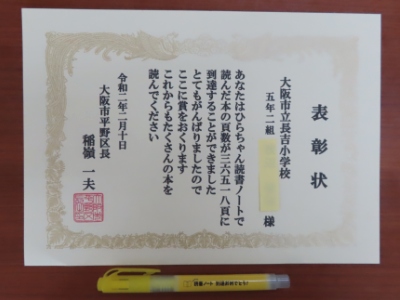 表彰状
大阪市立長吉小学校
五年二組
様
あなたはひらちゃん読書ノートで
読んだ本の頁数が三六五一八頁に
到達することができました
とてもがんばりましたので
ここに賞をおくります
これからもたくさんの本を
読んでください
令和二年二月十日
大阪市平野区長
稲嶺一夫